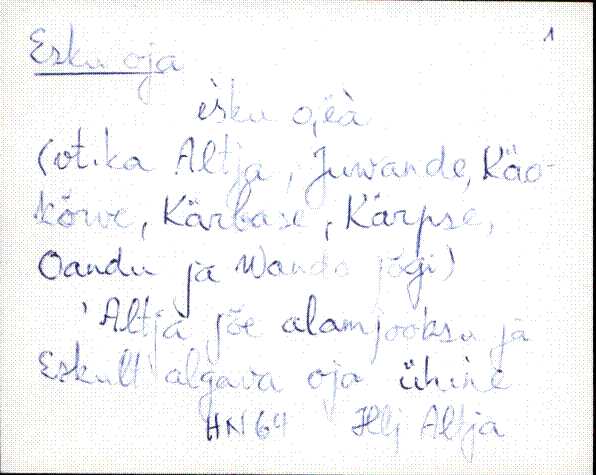 1
Esku oja
èsku o,ëà
(vt. ka Altja, Juwande, Käo-
kõrve, Kärbase, Kärpse,
Oandu ja Wando jõgi)
'Altja jõe alamjooksu ja
Eskult algava oja ühine
HN64 Hlj Altja